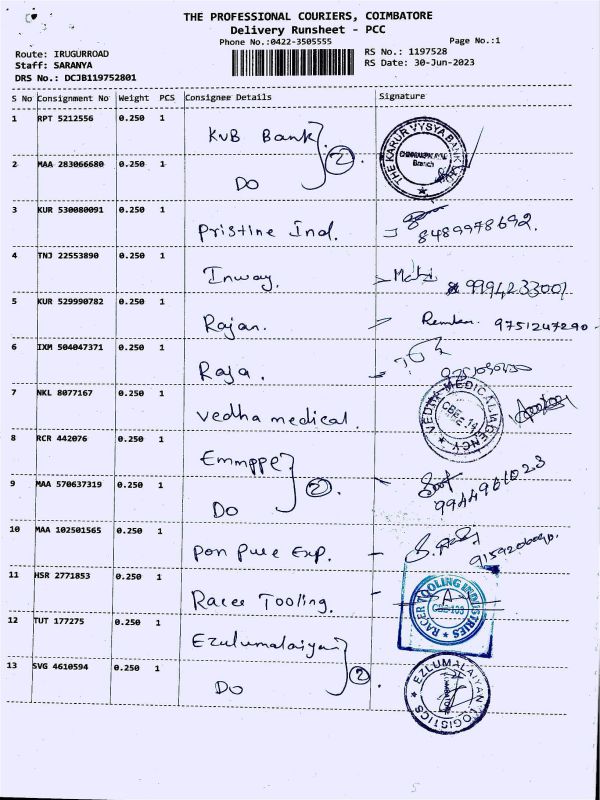 THE PROFESSIONAL COURIERS, COIMBATORE
Delivery Runsheet - PCC
Phone No.:0422-3505555 Page No.:1
Route: IRUGURROAD RS No.: 1197528
Staff: SARANYA RS Date: 30-Jun-2023
DRS No.: DCJB119752801
S No Consignment No Weight PCS Consignee Details Signature
1 RPT 5212556 0.250 1 KVB Bank 2 THE KARUR VYSYA BANK Branch
2 MAA 283066680 0.250 1 Do
3 KUR 530080091 0.250 1 Pristine Ind. 8489978692.
4 TNJ 22553890 0.250 1 Inway. 9994233001
5 KUR 529990782 0.250 1 Rajan. 9751247290
6 IXM 504047371 0.250 1 Raja.
7 NKL 8077167 0.250 1 Vedha medical. VEDHA MEDICAL AGENCY CBE-14
8 RCR 442076 0.250 1 Emmppe 2.
9 MAA 570637319 0.250 1 Do 9944961023
10 MAA 102501565 0.250 1 Pon Pure Exp.
11 HSR 2771853 0.250 1 Racer Tooling. RACER TOOLING INDUSTRIES CBE-103
12 TUT 177275 0.250 1 Ezulumalaiyan 2.
13 SVG 4610594 0.250 1 Do EZLUMALAIYAN LOGISTICS